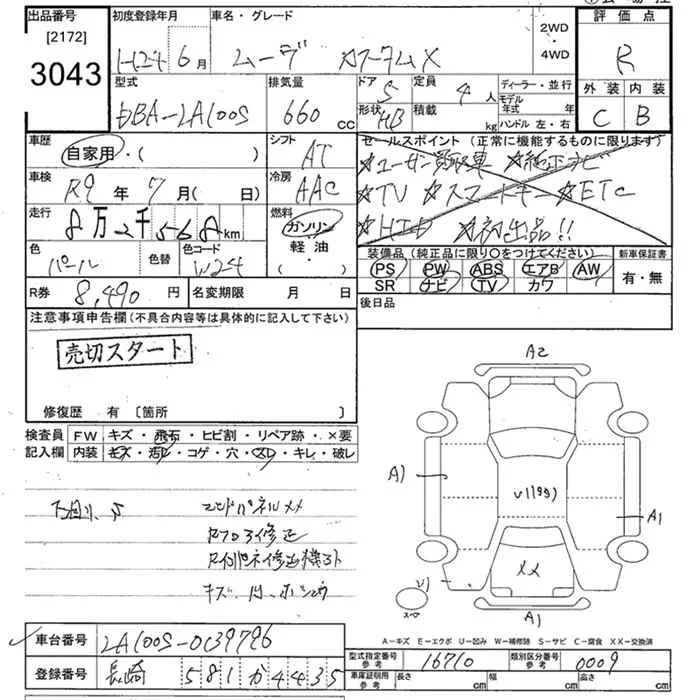 出品番号 初度登録年月 車名・グレード 2WD・4WD 評価点
[2172]
3043
H24年6月 ムーヴ カスタムX R
型式 排気量 ドア 定員 ディーラー・並行 外装 内装
DBA-LA100S 660cc 5 4人 モデル年式 年 C B
形状 HB 積載 kg ハンドル 左・右
車歴 自家用・( ) シフト AT
セールスポイント(正常に機能するものに限ります)
☆ユーザー買取車 ☆純正ナビ
☆TV ☆スマートキー ☆ETC
☆HID ☆初出品!!
車検 R9年7月( 日) 冷房 AAC
走行 8万2千568km 燃料 ガソリン・軽油・( )
色 パール 色替 色コード W24
装備品(純正品に限り○をつけてください) 新車保証書
PS PW ABS エアB AW 有・無
SR ナビ TV カワ
R券 8,490円 名変期限 月 日 後日品
注意事項申告欄(不具合内容等は具体的に記入して下さい)
売切スタート
修復歴 有 〔箇所 〕
検査員記入欄 FW キズ・飛石・ヒビ割・リペア跡・×要
内装 キズ・汚レ・コゲ・穴・スレ・キレ・破レ
下廻り、サ
エンドパネルXX
Rフロア修正
キズ・凹・ホシュウ
A2
A1
U1(99)
A1
XX
U1
A1
A-キズ E-エクボ U-凹み W-補修跡 S-サビ C-腐食 XX-交換済
車台番号 LA100S-0039796
登録番号 長崎 581 か 4435
型式指定番号 参考 16710 類別区分番号 参考 0009
車庫証明用 参考 長さ cm 幅 cm 高さ cm